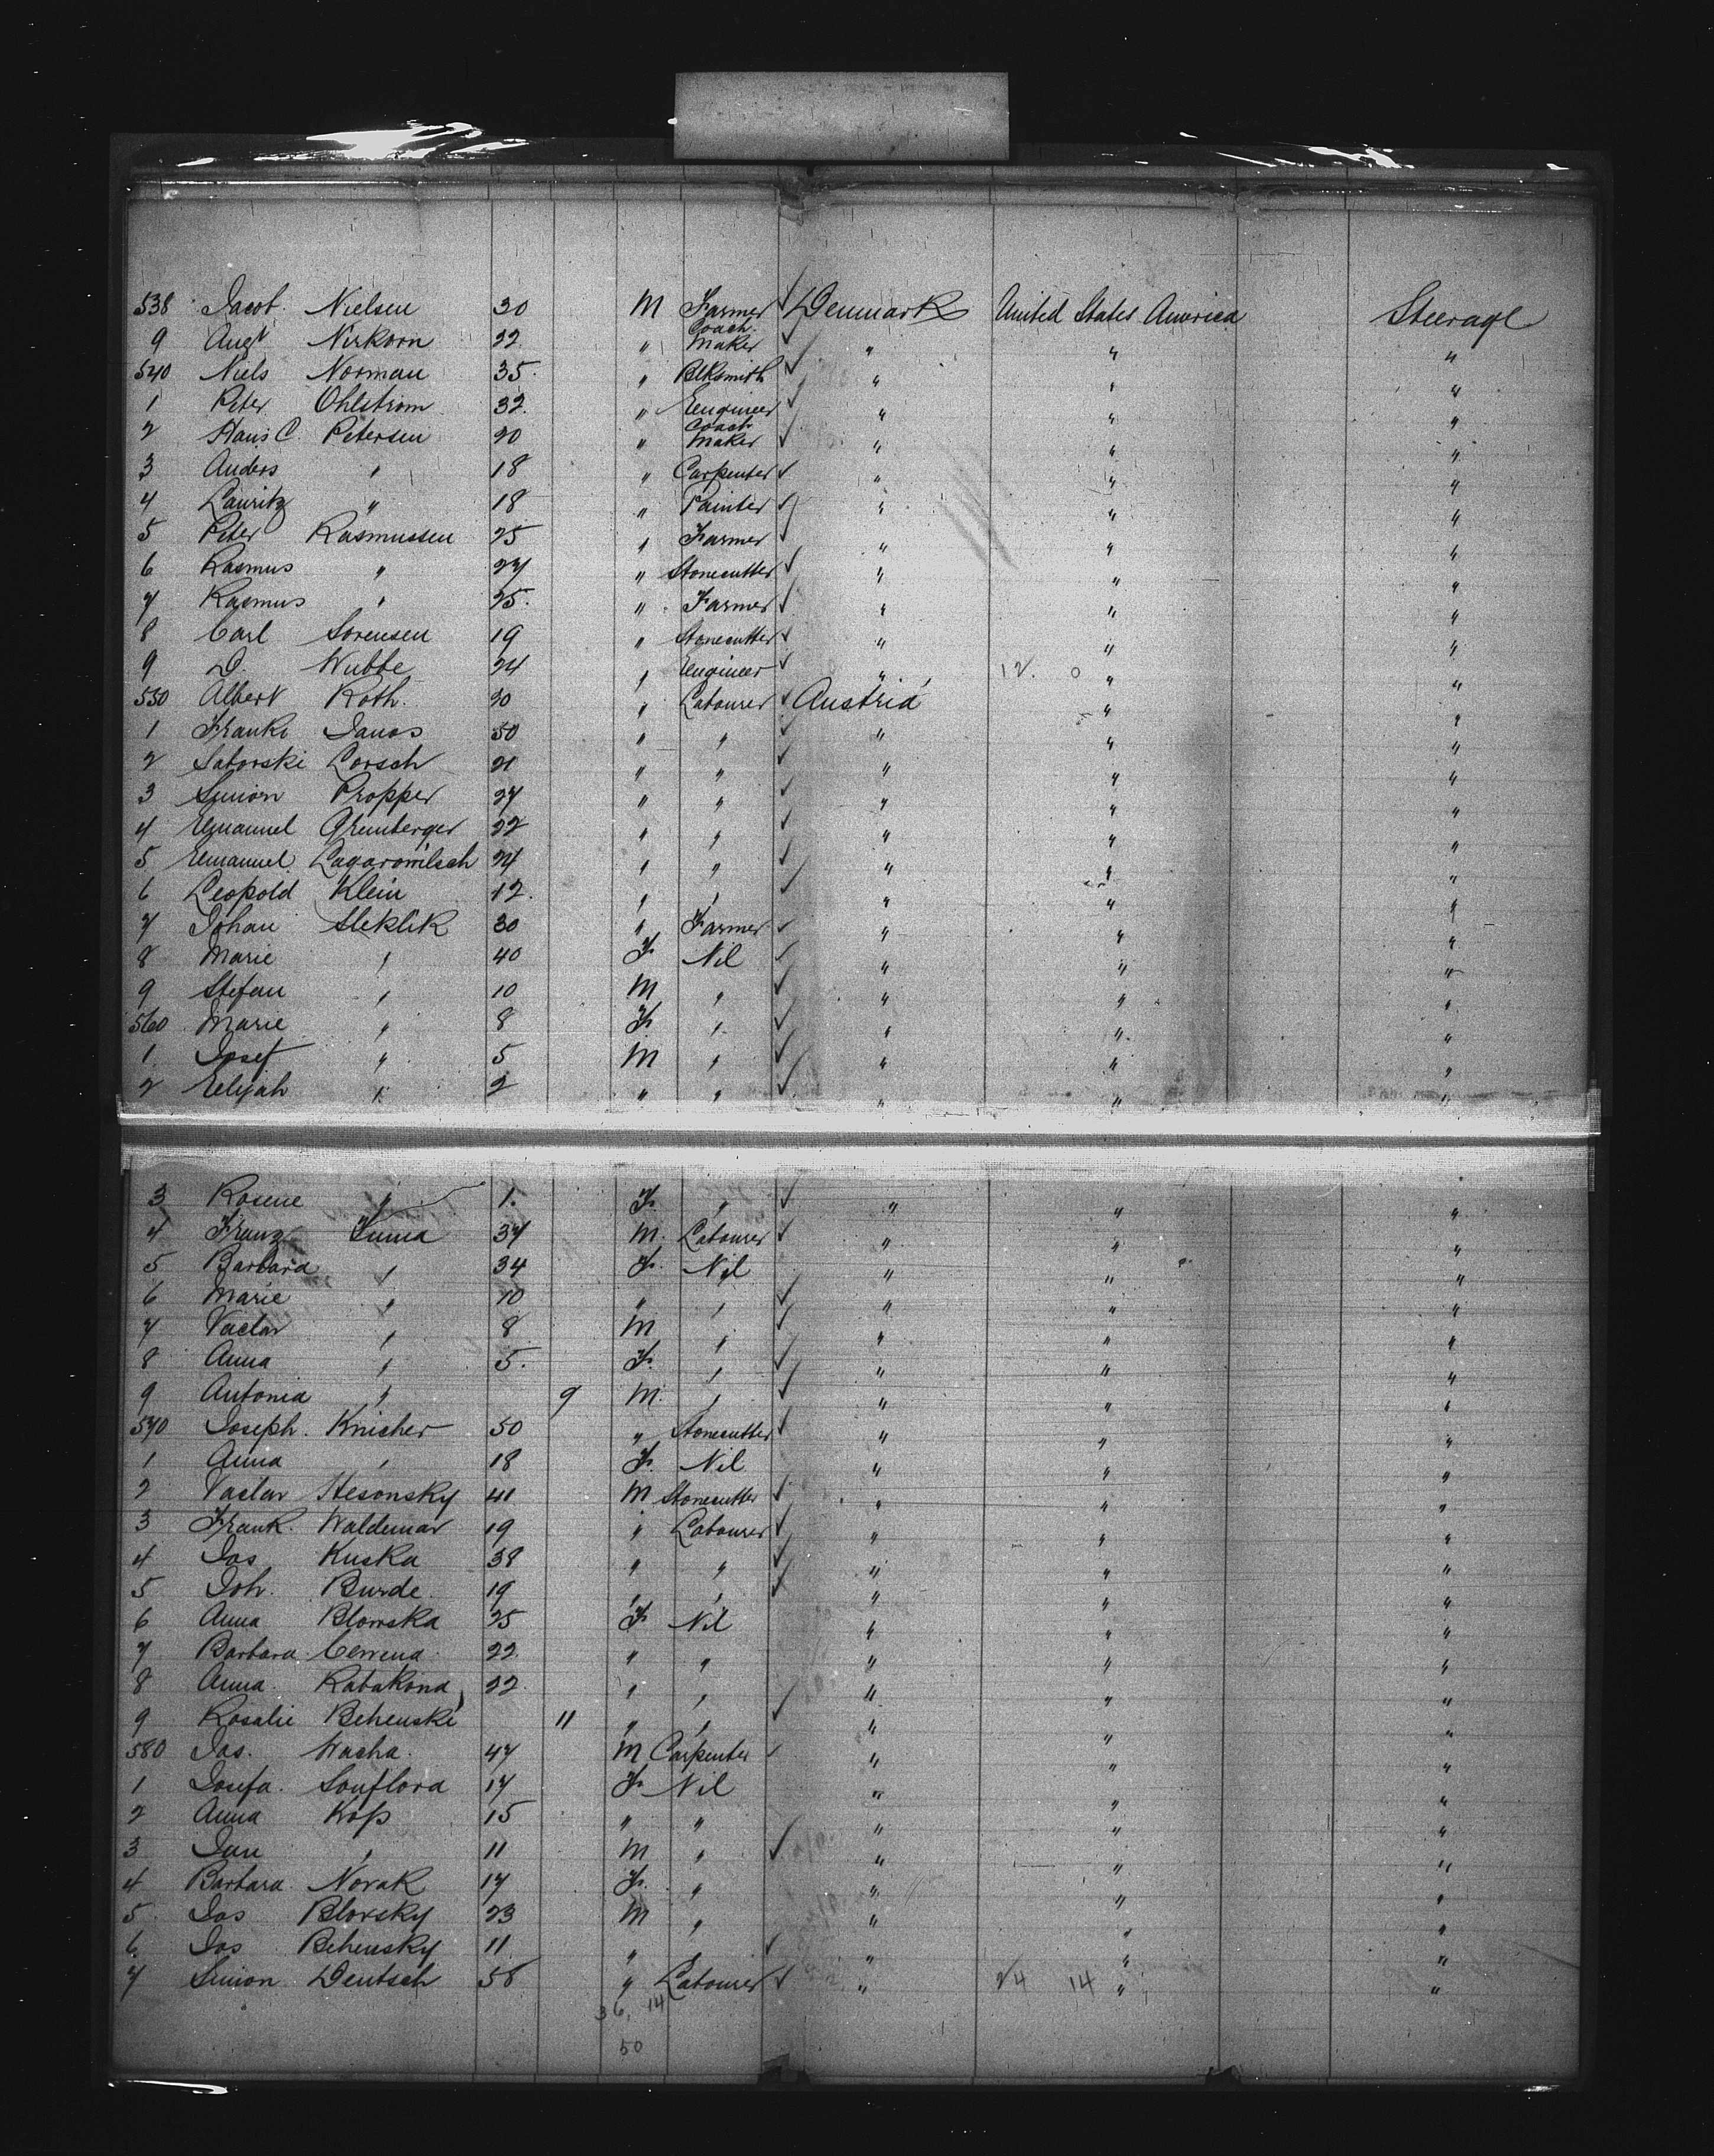 538 Jacob Nielsen 30 M Farmer ✓ Denmark United States America Steerage
9 Augt Nirkorn 22 " Coach Maker ✓ " " "
540 Niels Norman 35 " Blksmith ✓ " " "
1 Peter Ohlstrom 32 " Engineer ✓ " " "
2 Hans C. Petersen 20 " Coach Maker ✓ " " "
3 Anders " 18 " Carpenter ✓ " " "
4 Lauritz " 18 " Painter ✓ " " "
5 Peter Rasmussen 25 " Farmer ✓ " " "
6 Rasmus " 27 " Stonecutter ✓ " " "
7 Rasmus " 25 " Farmer ✓ " " "
8 Carl Sorensen 19 " Stonecutter ✓ " " "
9 D. Wubbe 24 " Engineer ✓ " 12. 0 " "
550 Albert Roth 30 " Labourer ✓ Austria " "
1 Franki Janos 50 " " ✓ " " "
2 Satorski Lorsch 21 " " ✓ " " "
3 Simon Propper 27 " " ✓ " " "
4 Emanuel Grunberger 22 " " ✓ " " "
5 Emanuel 24 " " ✓ " " "
6 Leopold Klein 12 " " ✓ " " "
7 Johan Sleklik 30 " Farmer ✓ " " "
8 Marie " 40 F Nil ✓ " " "
9 Stefan " 10 M " ✓ " " "
560 Marie " 8 F " ✓ " " "
1 Josef " 5 M " ✓ " " "
2 Elijah " 2 " " ✓ " " "
3 Rosene " 1 F " ✓ " " "
4 Franz Tuma 37 M Labourer ✓ " " "
5 Barbara " 34 F Nil " " "
6 Marie " 10 " " ✓ " " "
7 Vaclav " 8 M " ✓ " " "
8 Anna " 5 F " ✓ " " "
9 Antonia " 9 M " ✓ " " "
570 Joseph Knicher 50 " Stonecutter ✓ " " "
1 Anna " 18 F Nil " " "
2 Vaclav Hesonsky 41 M Stonecutter ✓ " " "
3 Frank Waldemar 19 " Labourer ✓ " " "
4 Jos Kuska 38 " " ✓ " " "
5 Joh. Burde 19 " " ✓ " " "
6 Anna Blowska 25 F Nil " " "
7 Barbara Cerrena 22 " " " " "
8 Anna Rabakona 22 " " " " "
9 Rosalie Behenske 11 " " ✓ " " "
580 Jos. Wacha 47 M Carpenter ✓ " " "
1 Josefa Souflova 17 F Nil " " "
2 Anna Kop 15 " " " " "
3 Jan " 11 M " ✓ " " "
4 Barbara Novak 17 F " " " "
5 Jos Blovsky 23 M " " " "
6 Jos Behensky 11 " " ✓ " " "
7 Simon Deutsch 58 " Labourer ✓ " 24 14 " "
36, 14
50